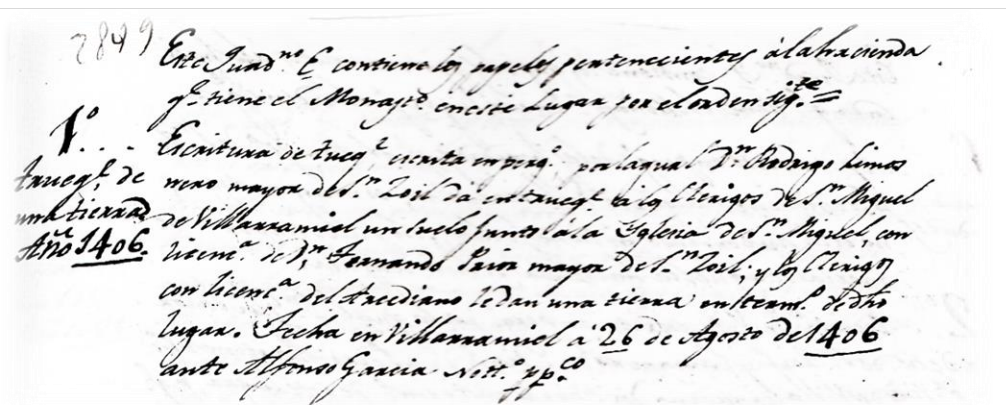 2849
Este Quadno. 6. contiene los papeles pertenecientes à la hacienda
qe. tiene el Monasto. en este Lugar por el orden sigte. =
1º . . .
trueqe. de
una tierra
Año 1406.
Escritura de trueqe. escrita en pergo. por la qual Dn. Rodrigo Limos
nero mayor de Sn. Zoil dà en trueqe. à los Clerigos de Sn. Miguel
de Villarramiel un suelo junto à la Iglesia de Sn. Miguel, con
licena. de Dn. Fernando Prior mayor de Sn. Zoil; y los Clerigos
con licena. del Arcediano le dan una tierra en termo. de dho
lugar. Fecha en Villarramiel à 26 de Agosto de 1406
ante Alfonso Garcia Notto. ppco